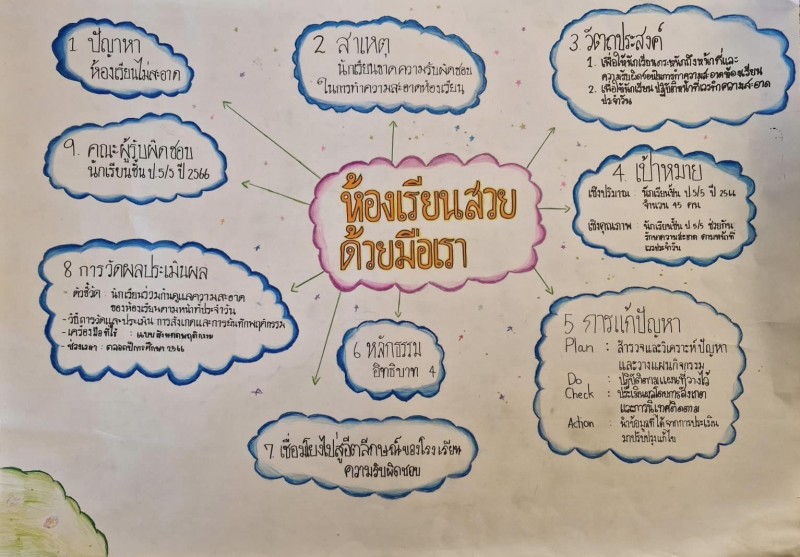 ห้องเรียนสวย
ด้วยมือเรา
1 ปัญหา
ห้องเรียนไม่สะอาด
2 สาเหตุ
นักเรียนขาดความรับผิดชอบ
ในการทำความสะอาดห้องเรียน
3 วัตถุประสงค์
1. เพื่อให้นักเรียนตระหนักถึงหน้าที่และ
ความรับผิดชอบในการทำความสะอาดห้องเรียน
2. เพื่อให้นักเรียนปฏิบัติหน้าที่และทำความสะอาด
ประจำวัน
4. เป้าหมาย
เชิงปริมาณ : นักเรียนชั้น ป.5/5 ปี 2566
จำนวน 45 คน
เชิงคุณภาพ : นักเรียนชั้น ป.5/5 ช่วยกัน
รักษาความสะอาด ตามหน้าที่
เวรประจำวัน
5 การแก้ปัญหา
Plan : สำรวจและวิเคราะห์ปัญหา
และวางแผนกิจกรรม
Do : ปฏิบัติตามแผนที่วางไว้
Check : ประเมินผลโดยการสังเกต
และการนิเทศติดตาม
Action : นำข้อมูลที่ได้จากการประเมิน
มาปรับปรุงแก้ไข
6 หลักธรรม
อิทธิบาท 4
7. เชื่อมโยงไปสู่อัตลักษณ์ของโรงเรียน
ความรับผิดชอบ
8 การวัดผลประเมินผล
- ตัวชี้วัด : นักเรียนร่วมกันดูแลความสะอาด
ของห้องเรียนตามหน้าที่ประจำวัน
- วิธีการวัดและประเมิน การสังเกตและการบันทึกพฤติกรรม
- เครื่องมือที่ใช้ : แบบสังเกตพฤติกรรม
- ช่วงเวลา : ตลอดปีการศึกษา 2566
9. คณะผู้รับผิดชอบ
นักเรียนชั้น ป.5/5 ปี 2566